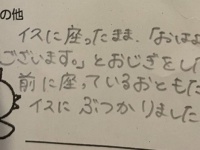 の他
イスに座ったまま、「おはよ
ございます。」とおじぎをし
前に座っているおともだ
イスにぶつかりました